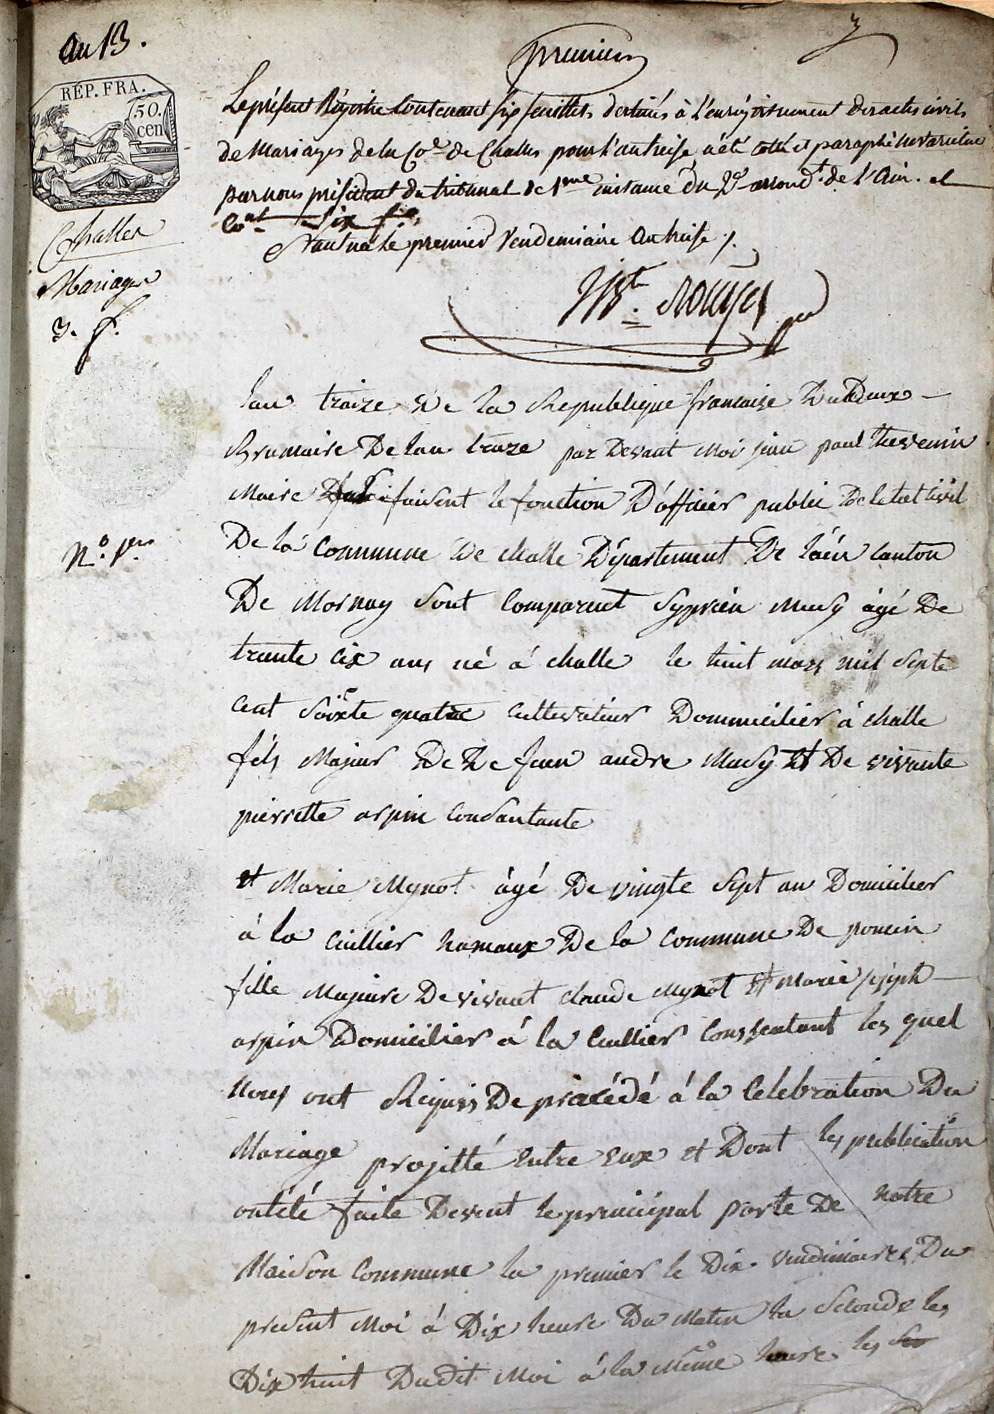 an 13.
premier
3
RÉP. FRA.
50. cen
Le présent Régistre contenant six feuillets, destinés à l'enrégistrement des actes civils
de Mariages de la Co.e de Challes pour l'an treise a été coté et paraphé ne varietur
par nous président du tribunal de 1.ere instance du 2.e arrond.t de l'Ain. et
Co.nt six f.es
Nantua le premier Vendemiaire an treise /.
Challes
Mariages
3. f.
JB.te Rouyer
N.o 1.er
lan traize De la Republique francaise Du Deux
Brumaire De lan traze par Devant Moi jean paul thevenin
Maire faisent le fonction D'afficier public De letat civil
De la Commune De challe Département De lain canton
De Mornay Sont Comparent Syprien Musy âgé De
trante cix ans né á challe le huit mars mil Septe
cent Soixte quatre cultivateur Dommicilier á challe
fils Majeur De De Jean andre Musy Et De vivante
pierrette arpin Consantante
et Marie Mynot âgé De vingte Sept an Domicilier
á la Cuillier hamaux De la Commune De poncin
fille Majeure De vivant claude Mynot Et Marie joseph
arpin Domicilier á la Cuillier Conssentant les quel
Nous ont Requis De procédé á la Célébration Du
Mariage projetté entre eux et Dont les publication
ont été faite Devent le principal porte De notre
Maison Commune la premier le Dix vendimaire Du
present Moi á Dix heure Du Matin la Seconde les
Dix huit Dudit Moi á la Même heure les